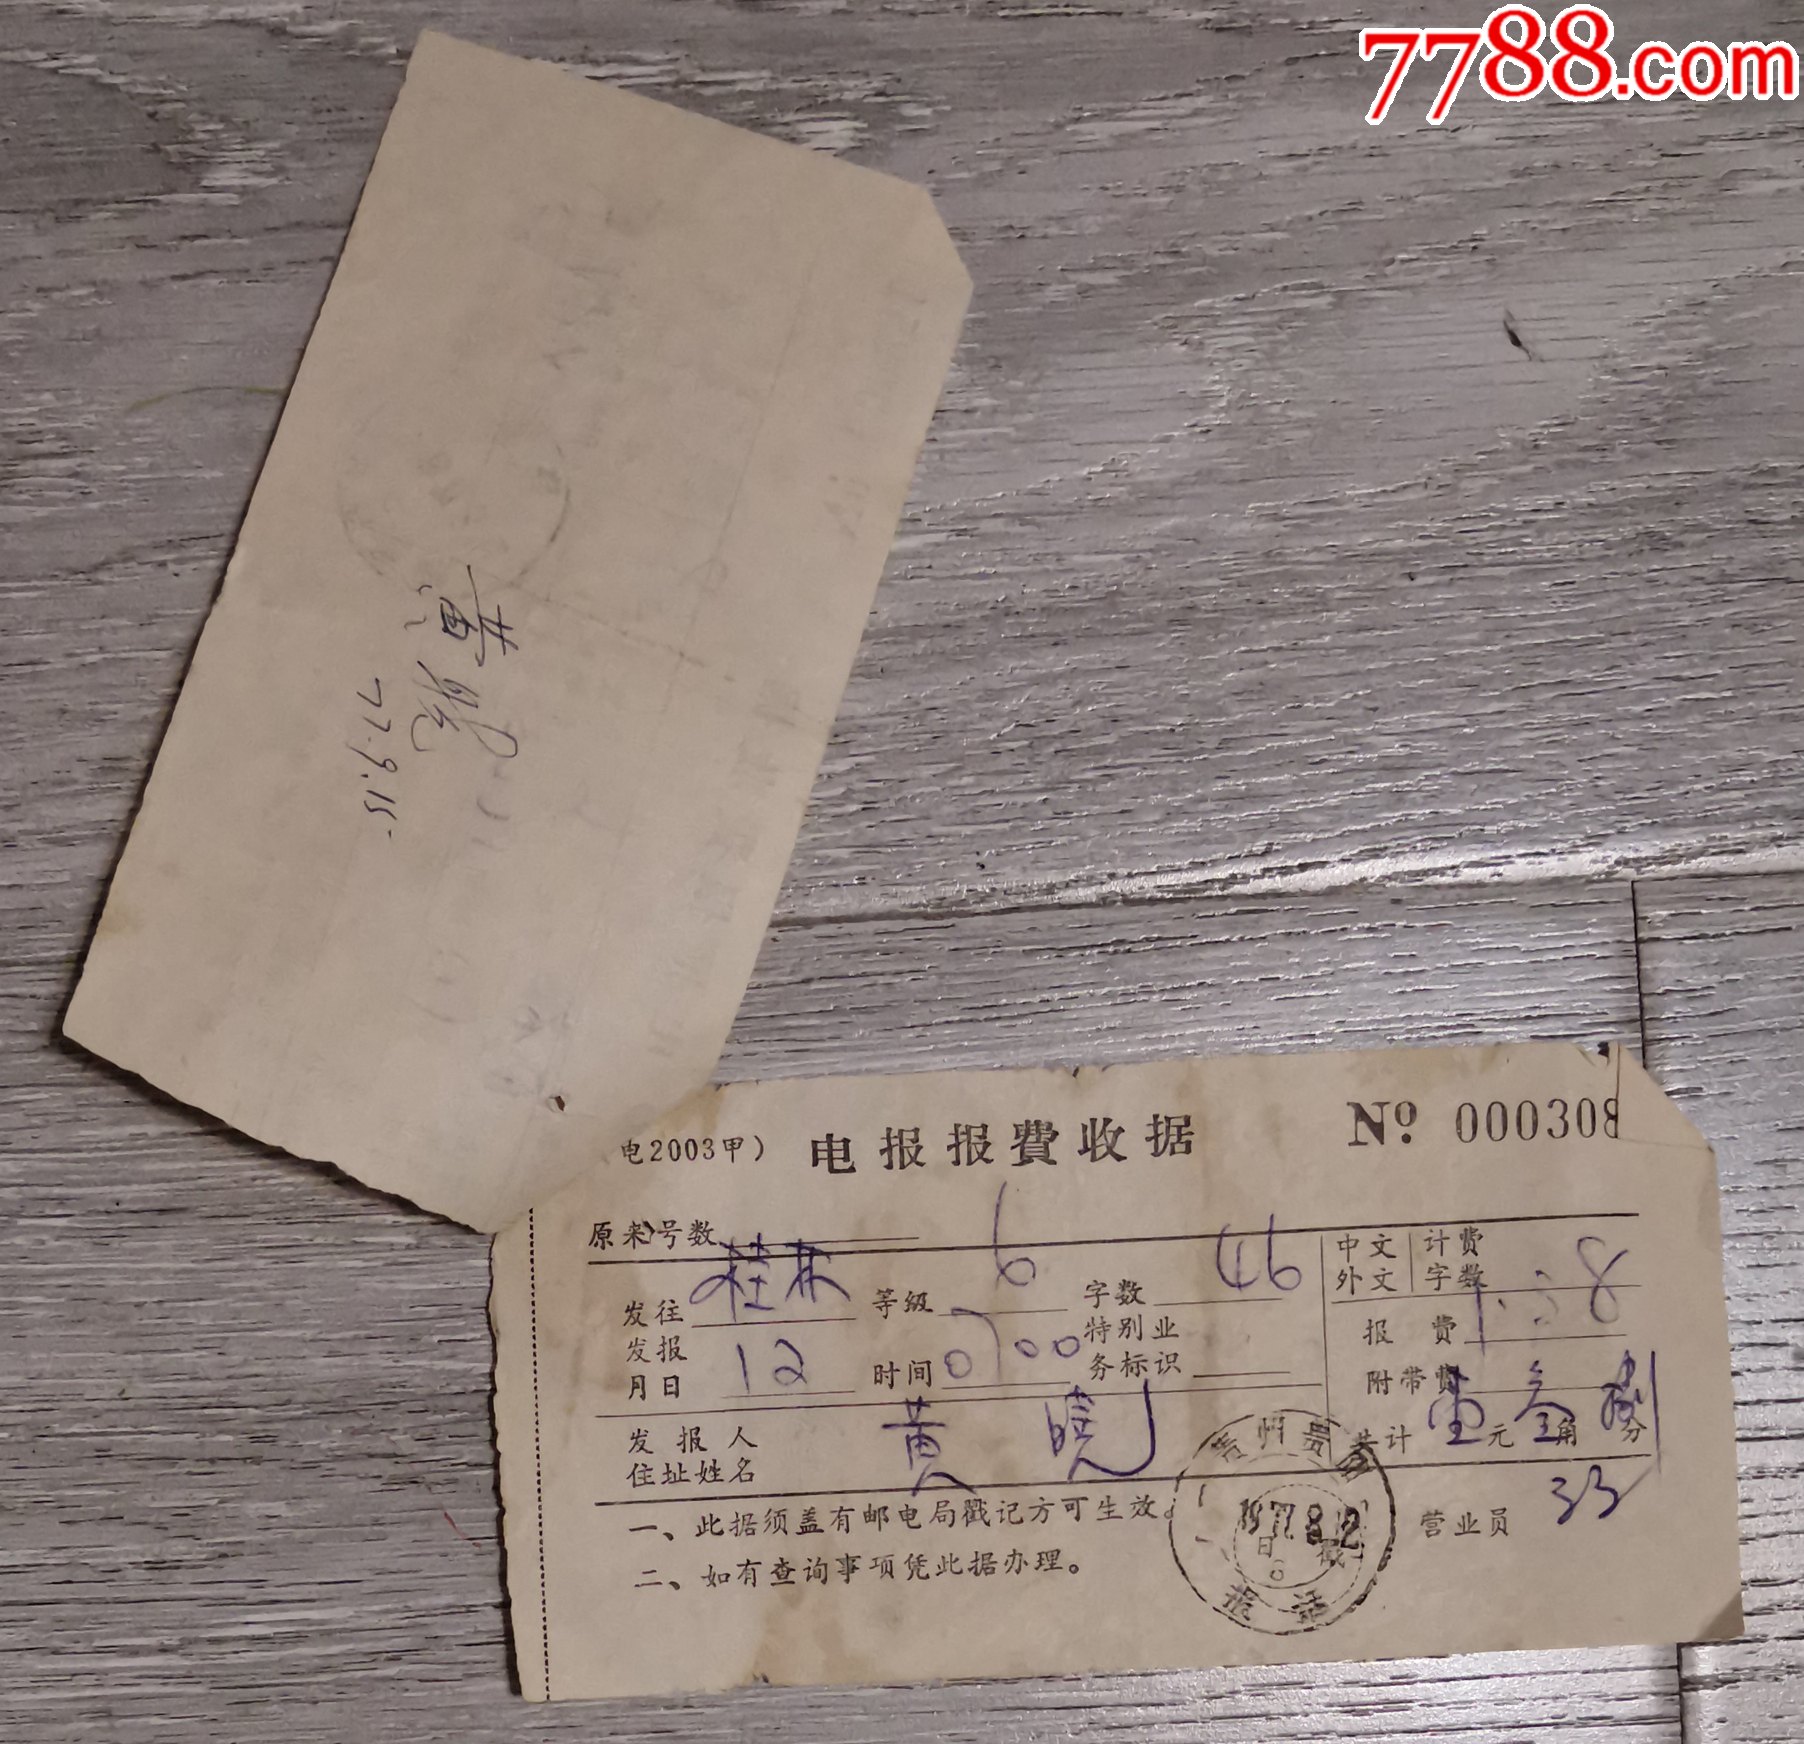 7788.com
黄晓
77.9.15
电2003甲） 电报报費收据 No 000308
原来号数
发往 桂林 等级 6 字数 46
中文 外文 计费字数
发报月日 12 时间 0700 特别业务标识
报费 1.38
附带费
发报人住址姓名 黄晓
共计 壹元叁角捌分
一、此据须盖有邮电局戳记方可生效。
营业员 33
二、如有查询事项凭此据办理。
贵州贵
1977.8.12